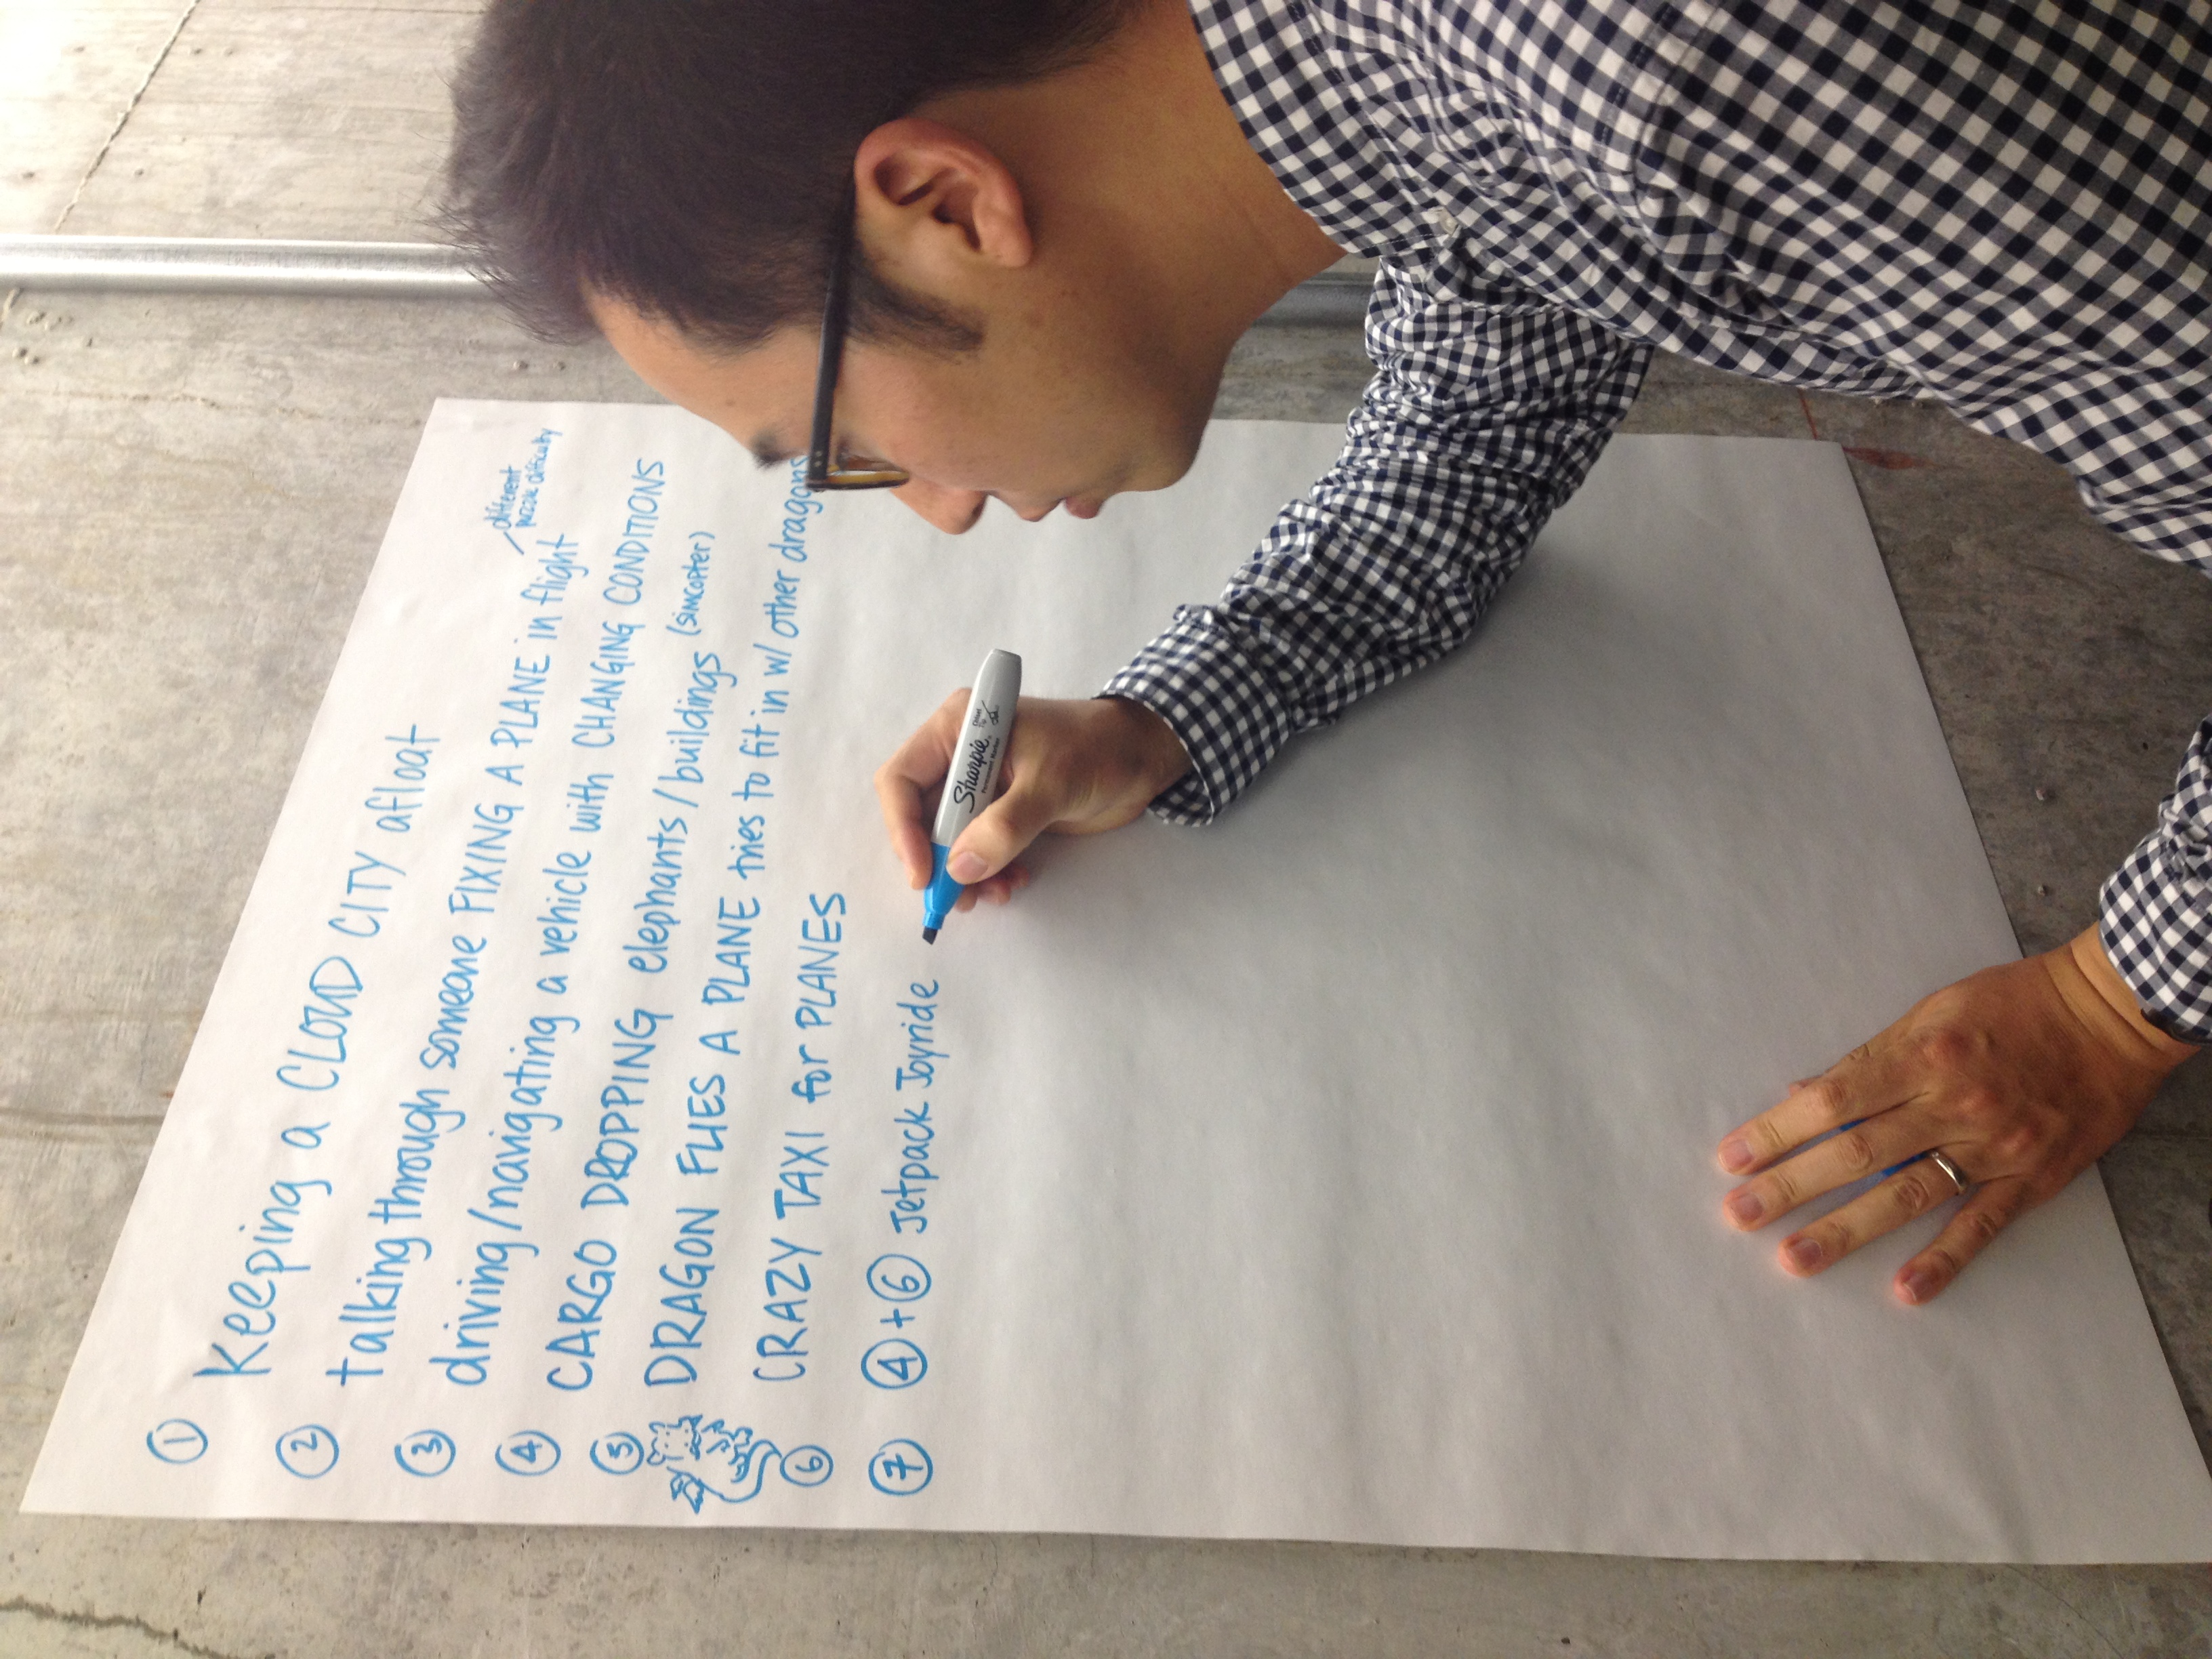 ① Keeping a CLOUD CITY afloat
② talking through someone FIXING A PLANE in flight
different
puzzle difficulty
③ driving/navigating a vehicle with CHANGING CONDITIONS
④ CARGO DROPPING elephants/buildings (simcopter)
⑤ DRAGON FLIES A PLANE tries to fit in w/ other dragons
⑥ CRAZY TAXI for PLANES
⑦ ④+⑥ Jetpack Joyride
Sharpie
Permanent Marker
Chisel
Tip